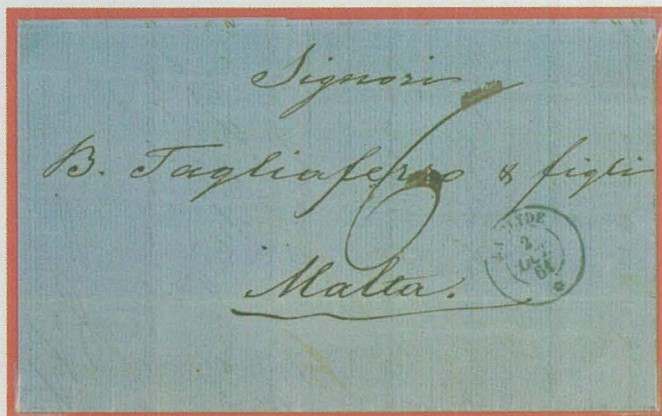 Signori
B. Tagliaferro & figli
6
Malta.
2
64